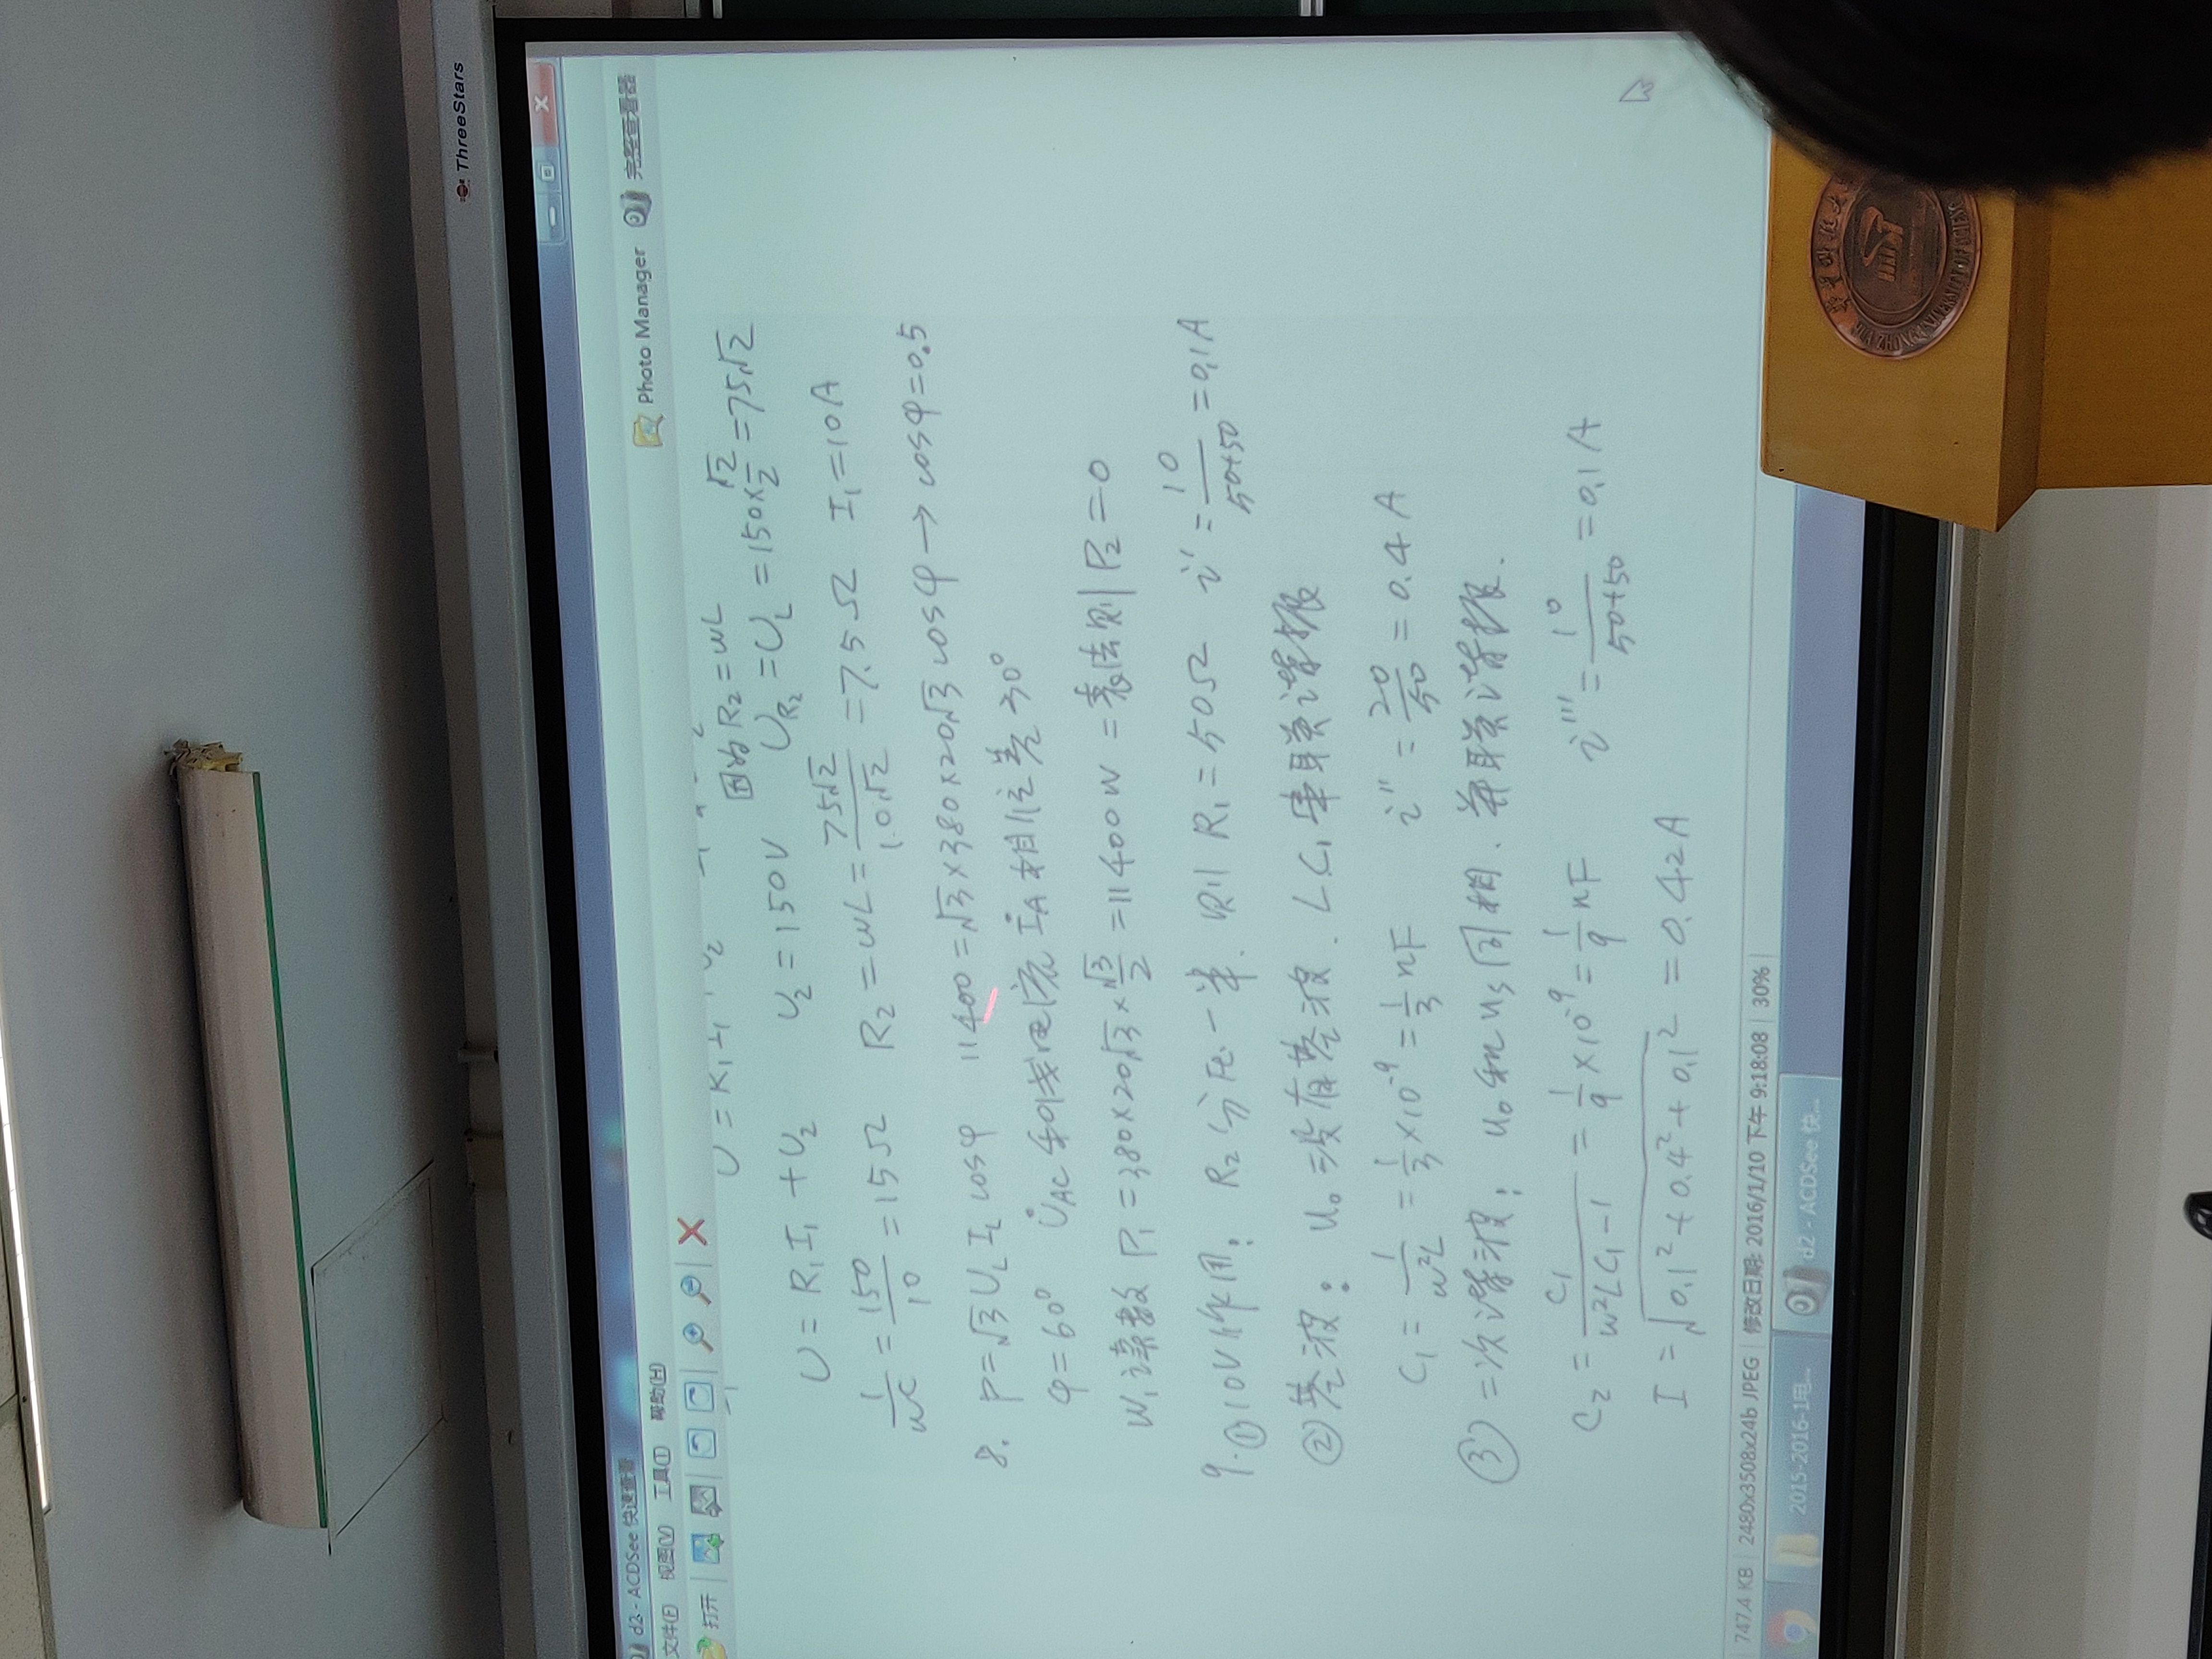 ThreeStars
d2 - ACDSee 快速查看
文件(F) 视图(V) 工具(T) 帮助(H)
Photo Manager 完整查看器
打开
U = R₁I₁ + U₂
因为 R₂ = wL
U = R₁I₁ + U₂ U₂ = 150V U_R₂ = U_L = 150 × √2/2 = 75√2
1/wC = 150/10 = 15Ω R₂ = wL = 75√2/10√2 = 7.5Ω I₁ = 10A
8. P = √3 U_L I_L cosφ 11400 = √3 × 380 × 20√3 cosφ → cosφ = 0.5
φ = 60° U̇_AC 和线电流 İ_A 相位差 30°
W₁ 读数 P₁ = 380 × 20√3 × √3/2 = 11400W 二表法则 P₂ = 0
9. ① 10V作用: R₂ 分压一半. 则 R₁ = 50Ω i' = 10/(50+50) = 0.1A
② 基波: u₀ 没有基波. LC₁ 串联谐振
C₁ = 1/w²L = 1/3 × 10⁻⁹ = 1/3 nF i'' = 20/50 = 0.4A
③ 二次谐波: u₀ 和 u_S 同相. 并联谐振.
C₂ = C₁/(w²LC₁ - 1) = 1/9 × 10⁻⁹ = 1/9 nF i''' = 10/(50+50) = 0.1A
I = √(0.1² + 0.4² + 0.1²) = 0.42A
747.4 KB 2480x3508x24b JPEG 修改日期: 2016/1/10 下午 9:18:08 30%
2015-2016-1电... d2 - ACDSee 快...
华中科技大
UNIVERSITY OF SCIENC